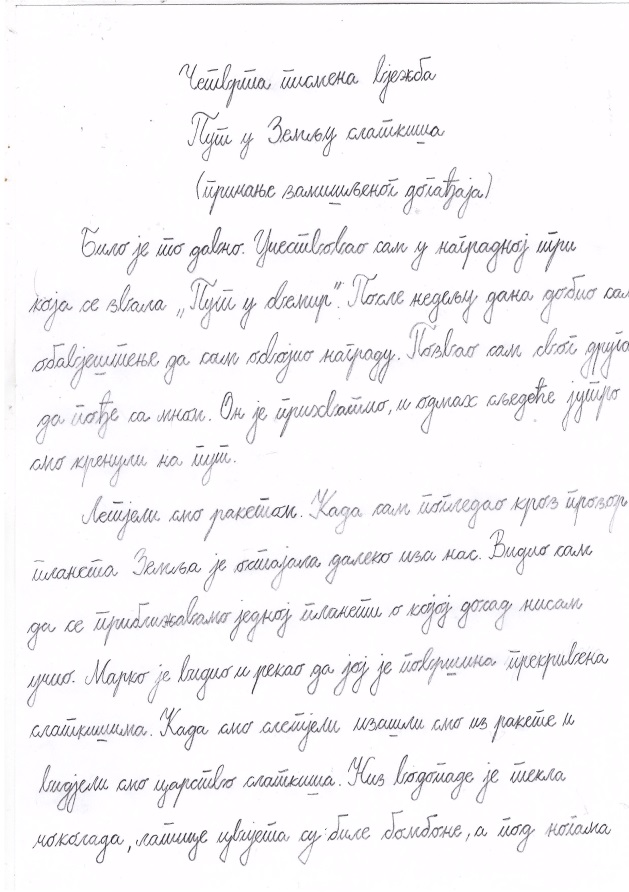 Четврта писмена вјежба
Пут у Земљу слаткиша
(причање замишљеног догађаја)
Било је то давно. Учествовао сам у наградној игри
која се звала „Пут у свемир". После недељу дана добио сам
обавјештење да сам освојио награду. Позвао сам свог друга
да пође са мном. Он је прихватио, и одмах сљедеће јутро
смо кренули на пут.
Летјели смо ракетом. Када сам погледао кроз прозор
планета Земља је остајала далеко иза нас. Видио сам
да се приближавамо једној планети о којој досад нисам
учио. Марко је видио и рекао да јој је површина прекривена
слаткишима. Када смо слетјели изашли смо из ракете и
видјели смо царство слаткиша. Низ водопаде је текла
чоколада, латице цвијета су биле бомбоне, а под ногама